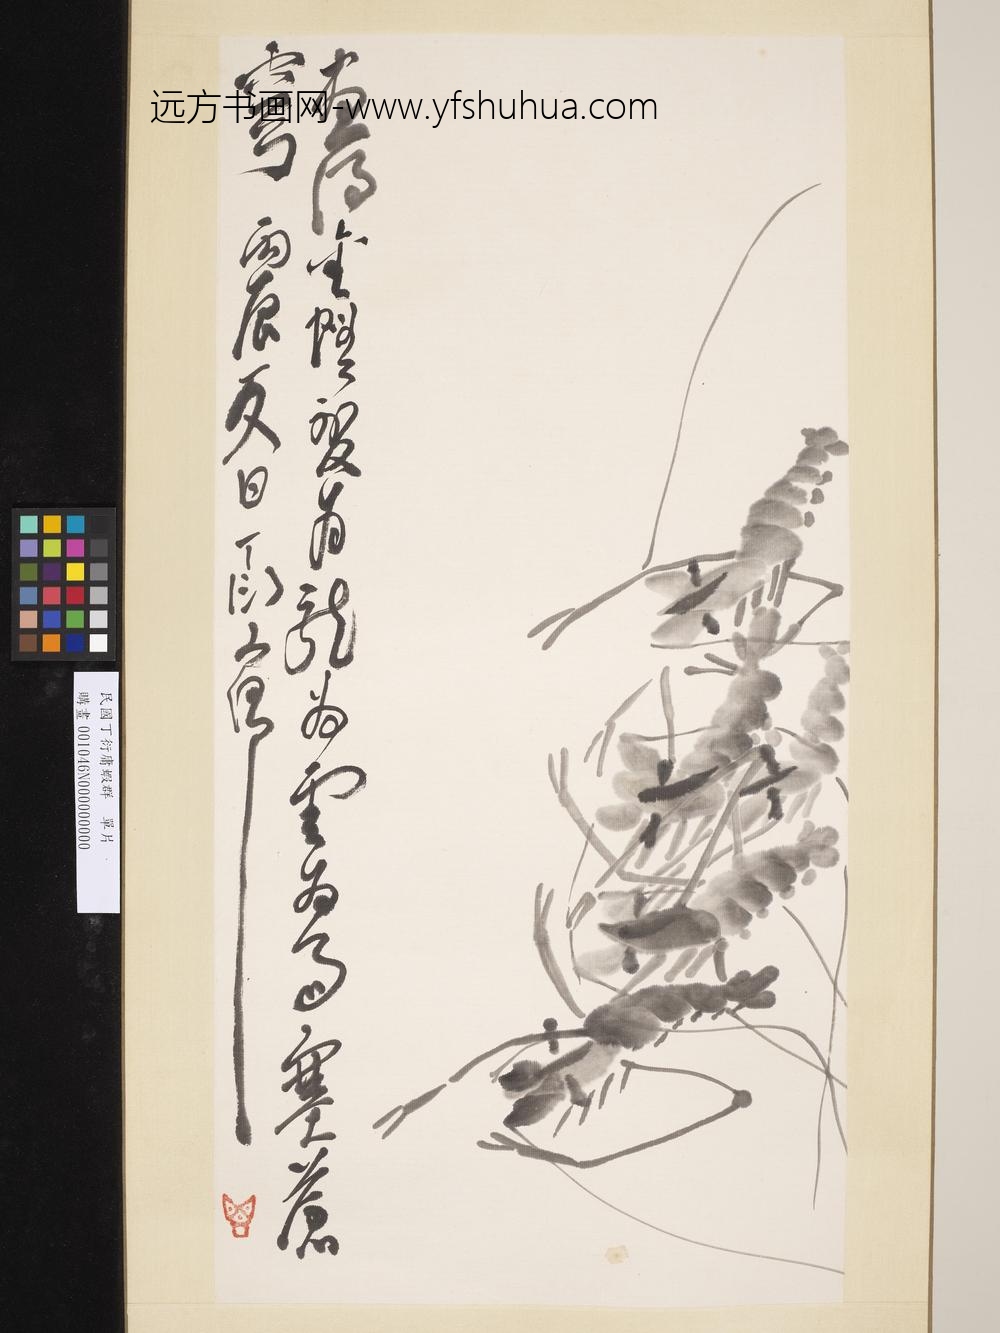 远方书画网-www.yfshuhua.com
畫得金蝦變為龍為雲為雨塞蒼
穹 丙辰夏日丁衍庸
民國丁衍庸蝦群 單片
購畫001046N000000000